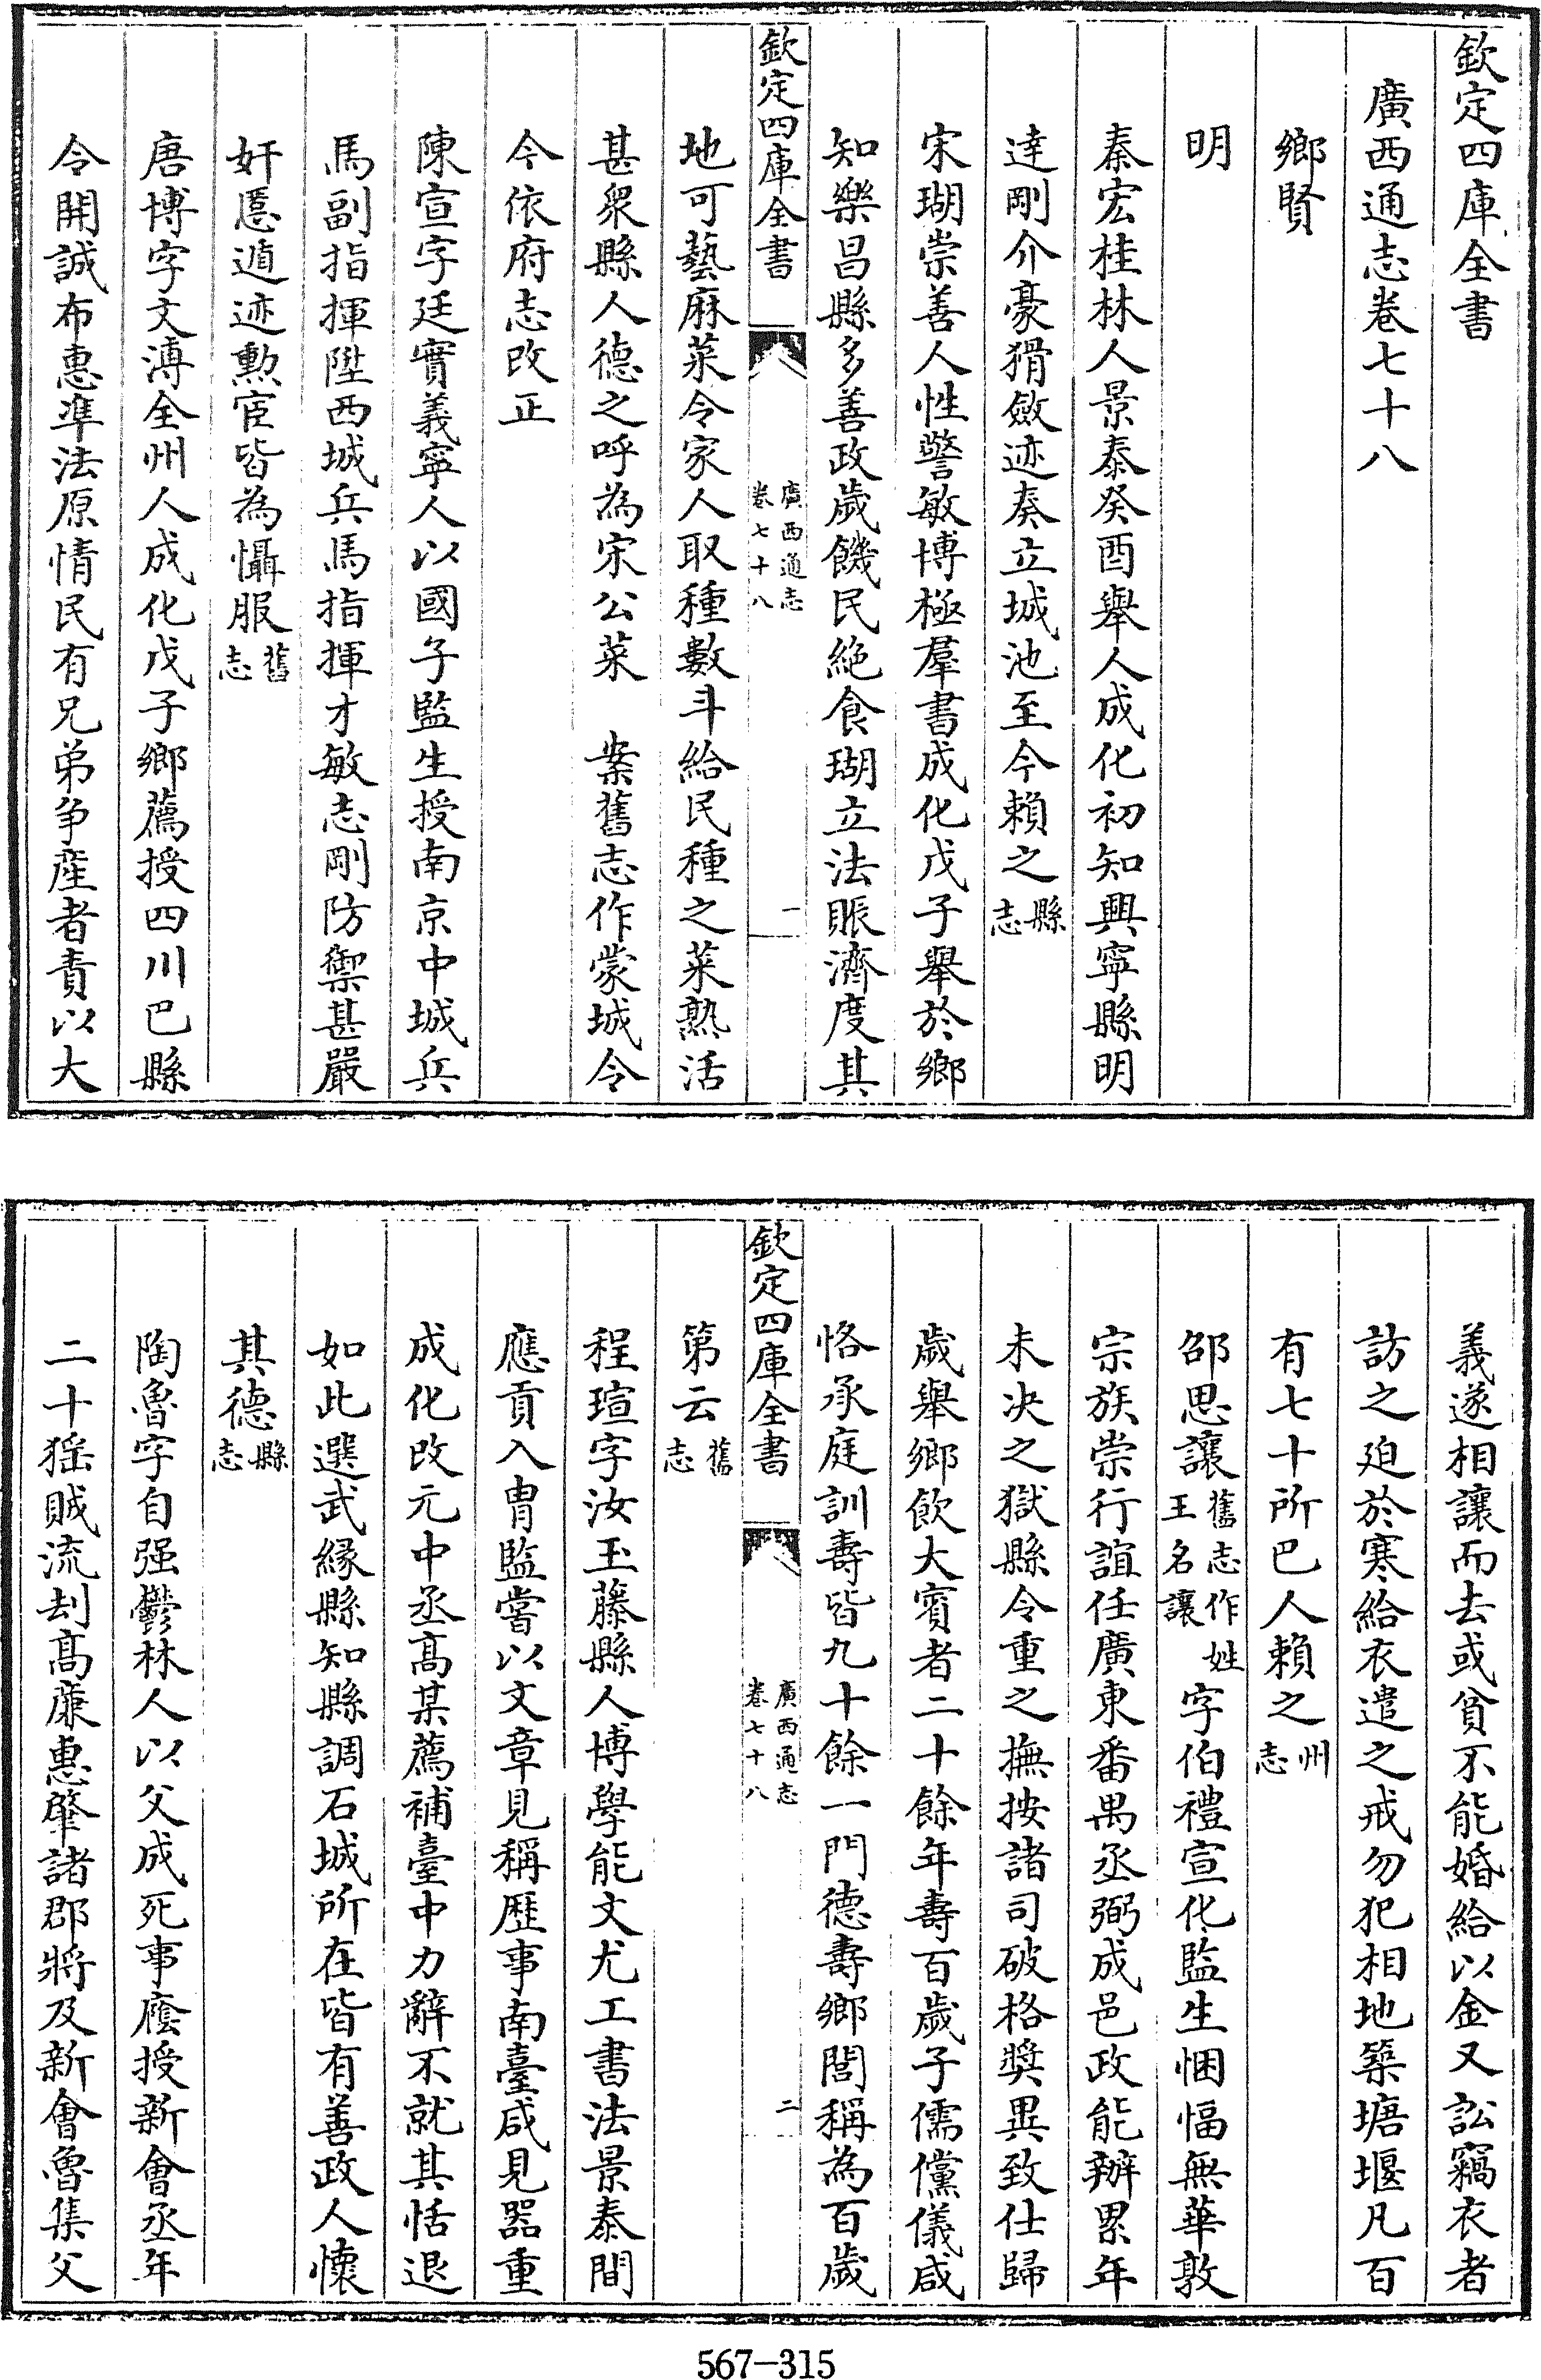 欽定四庫全書
廣西通志卷七十八
鄉賢
明
秦宏桂林人景泰癸酉舉人成化初知興寧縣明
達剛介豪猾斂迹奏立城池至今賴之縣志
宋瑚崇善人性警敏博極羣書成化戊子舉於鄉
知樂昌縣多善政歲饑民絶食瑚立法賑濟度其
欽定四庫全書
廣西通志
卷七十八
一
地可藝麻菜令家人取種數斗給民種之菜熟活
甚衆縣人德之呼為宋公菜　案舊志作蒙城令
今依府志改正
陳宣字廷實義寧人以國子監生授南京中城兵
馬副指揮陞西城兵馬指揮才敏志剛防禦甚嚴
奸慝遁迹勲宦皆為懾服舊志
唐博字文溥全州人成化戊子鄉薦授四川巴縣
令開誠布惠準法原情民有兄弟争産者責以大
義遂相讓而去或貧不能婚給以金又訟竊衣者
訪之廹於寒給衣遣之戒勿犯相地築塘堰凡百
有七十所巴人賴之州志
邵思讓舊志作姓王名讓字伯禮宣化監生悃愊無華敦
宗族崇行誼任廣東番禺丞弼成邑政能辦累年
未決之獄縣令重之撫按諸司破格奬異致仕歸
歲舉鄉飲大賓者二十餘年壽百歲子儒儻儀咸
恪承庭訓壽皆九十餘一門德壽鄉閭稱為百歲
欽定四庫全書
廣西通志
卷七十八
二
第云舊志
程瑄字汝玉藤縣人博學能文尤工書法景泰間
應貢入胄監嘗以文章見稱歷事南臺咸見器重
成化改元中丞髙某薦補臺中力辭不就其恬退
如此選武縁縣知縣調石城所在皆有善政人懷
其德縣志
陶魯字自强鬱林人以父成死事廕授新會丞年
二十猺賊流刦髙廉惠肇諸郡將及新會魯集父
567-315